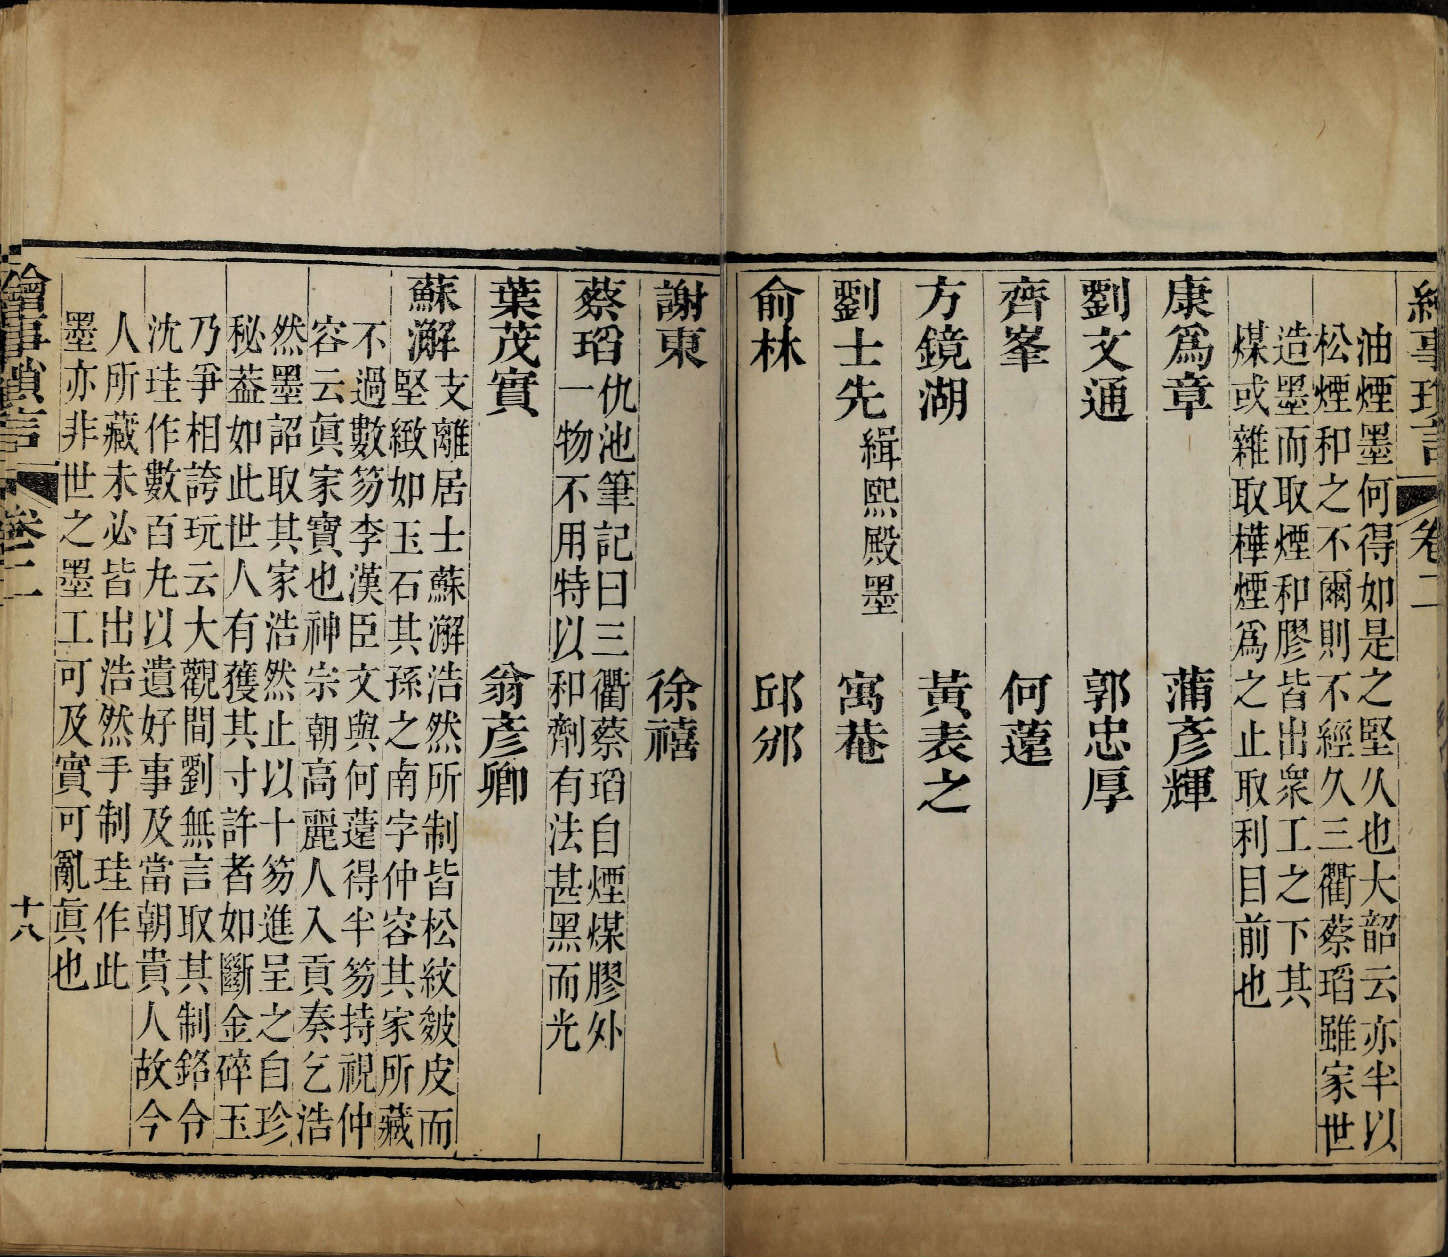 繪事瑣言 卷二
油煙墨何得如是之堅久也大韶云亦半以
松煙和之不爾則不經久三衢蔡瑫雖家世
造墨而取煙和膠皆出衆工之下其
煤或雜取樺煙爲之止取利目前也
康爲章 蒲彥輝
劉文通 郭忠厚
齊峯 何薳
方鏡湖 黃表之
劉士先 緝熙殿墨 寓菴
俞林 邱邠
謝東 徐禧
蔡瑫 仇池筆記曰三衢蔡瑫自煙煤膠外
一物不用特以和劑有法甚黑而光
葉茂實 翁彥卿
蘇澥 支離居士蘇澥浩然所制皆松紋皴皮而
堅緻如玉石其孫之南字仲容其家所藏
不過數笏李漢臣文與何薳得半笏持視仲
容云眞家寶也神宗朝高麗人入貢奏乞浩
然墨詔取其家浩然止以十笏進呈之自珍
秘葢如此世人有獲其寸許者如斷金碎玉
乃爭相誇玩云大觀間劉無言取其制銘令
沈珪作數百丸以遺好事及當朝貴人故今
人所藏未必皆出浩然手制珪作此
墨亦非世之墨工可及實可亂眞也
繪事瑣言 卷二 十八